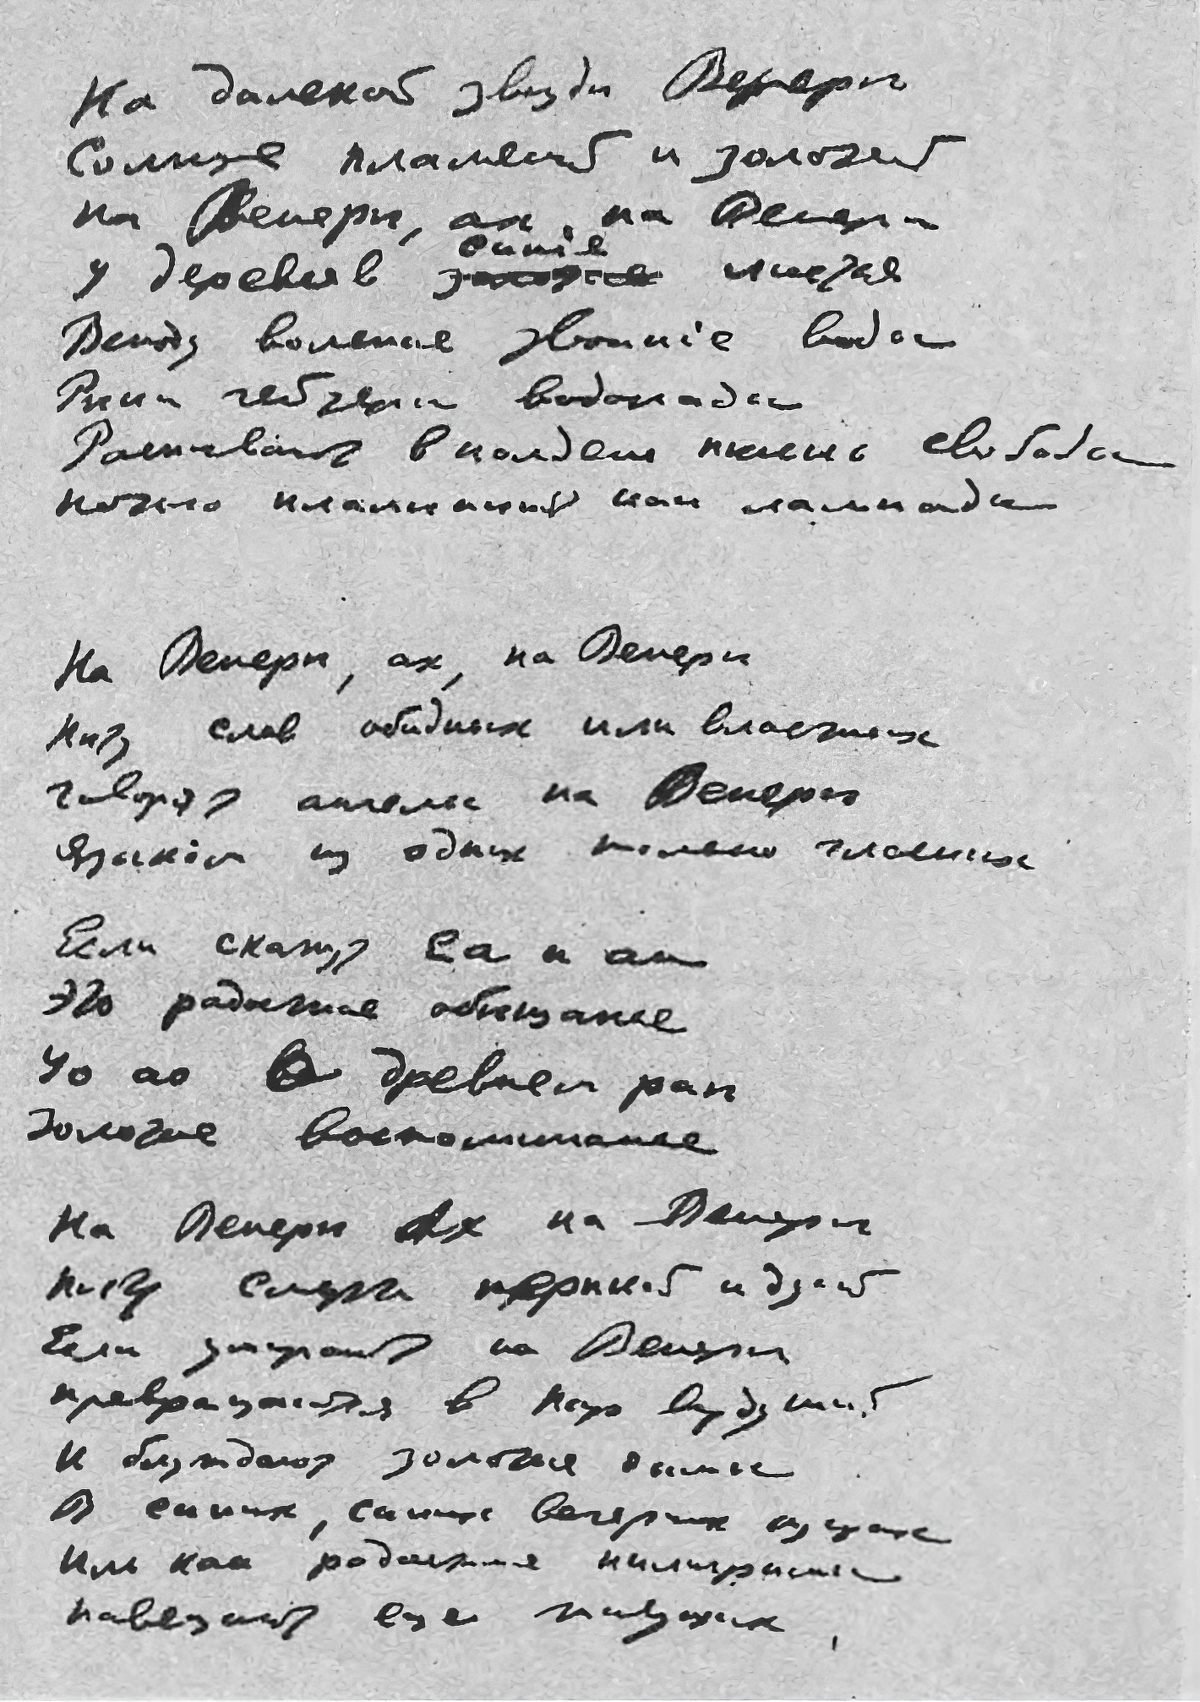 На далекой звѣздѣ Венерѣ
Солнце пламенней и золотей
На Венерѣ, ах, на Венерѣ
синiе
У деревьев листья
Всюду вольные звонкiе воды
Рѣки гейзеры водопады
Распевают в полдень пѣснь свободы
ночью пламенѣют как лампады
На Венерѣ, ах, на Венерѣ
Нѣту слов обидных или властных
Говорят ангелы на Венерѣ
Языком из одних только гласных
Если скажут еа и аи
Это радостное обѣщанье
Уо ао о древнем раѣ
Золотое воспоминанье
На Венерѣ Ах на Венерѣ
Нѣту смерти терпкой и душной
Если умирают на Венерѣ
превращаются в пар воздушный
И блуждают золотые дымы
В синих, синих вечерних кущах
Иль как радостные пилигримы
навещают еще живущих